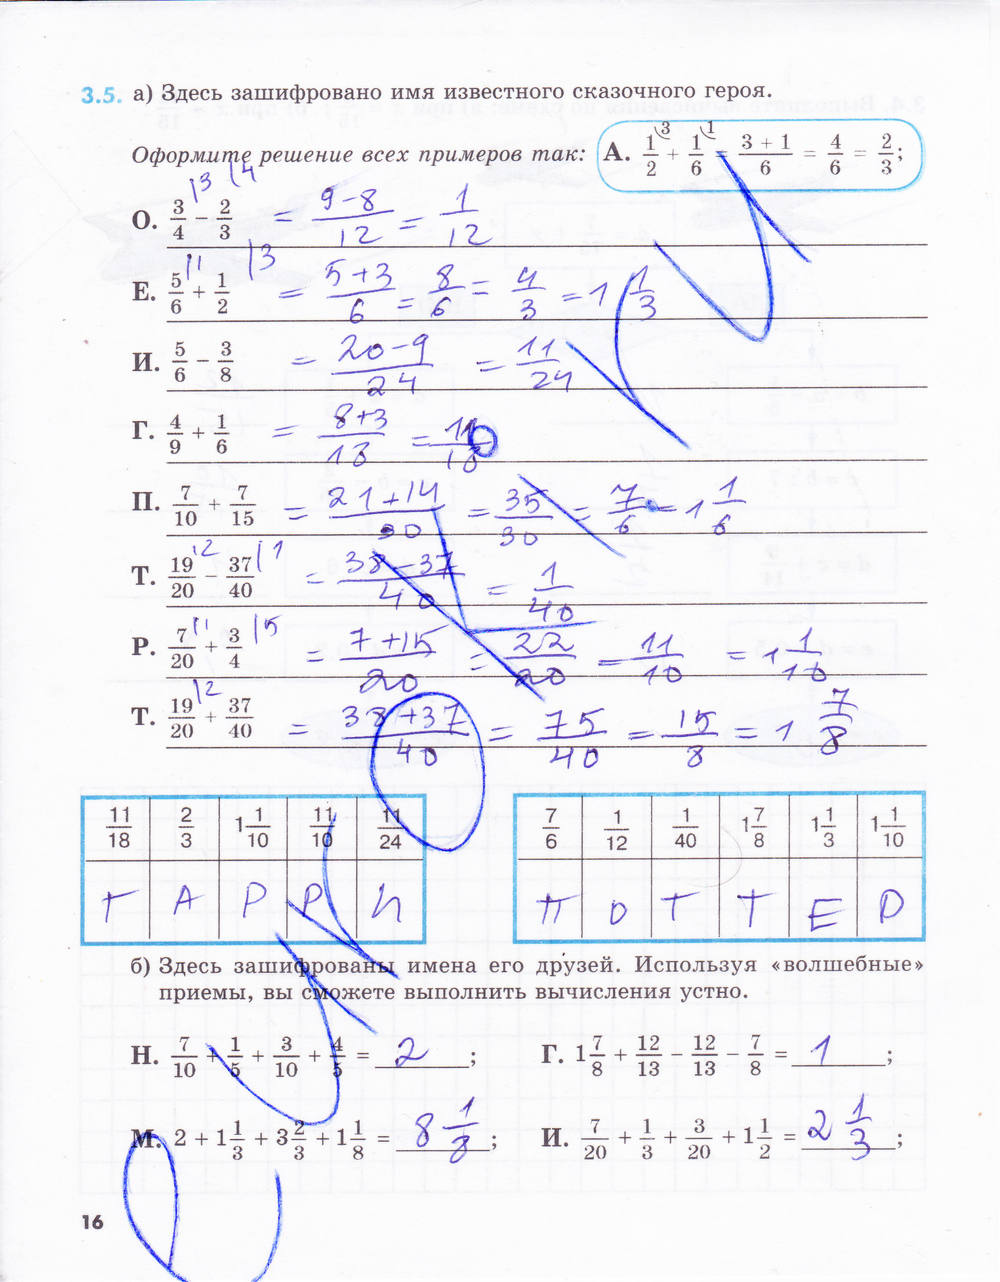 3.5. а) Здесь зашифровано имя известного сказочного героя.
Оформите решение всех примеров так: А. 1/2 \3 + 1/6 \1 = (3 + 1)/6 = 4/6 = 2/3;
О. 3/4 |3 − 2/3 |4 = (9-8)/12 = 1/12
Е. 5/6 |1 + 1/2 |3 = (5+3)/6 = 8/6 = 4/3 = 1 1/3
И. 5/6 − 3/8 = (20-9)/24 = 11/24
Г. 4/9 + 1/6 = (8+3)/18 = 11/18
П. 7/10 + 7/15 = (21+14)/30 = 35/30 = 7/6 = 1 1/6
Т. 19/20 |2 − 37/40 |1 = (38-37)/40 = 1/40
Р. 7/20 |1 + 3/4 |5 = (7+15)/20 = 22/20 = 11/10 = 1 1/10
Т. 19/20 |2 + 37/40 = (38+37)/40 = 75/40 = 15/8 = 1 7/8
11/18 2/3 1 1/10 11/10 11/24
Г А Р Р И
7/6 1/12 1/40 1 7/8 1 1/3 1 1/10
П О Т Т Е Р
б) Здесь зашифрованы имена его друзей. Используя «волшебные»
приемы, вы сможете выполнить вычисления устно.
Н. 7/10 + 1/5 + 3/10 + 4/5 = 2; Г. 1 7/8 + 12/13 − 12/13 − 7/8 = 1;
М. 2 + 1 1/3 + 3 2/3 + 1 1/8 = 8 1/8; И. 7/20 + 1/3 + 3/20 + 1 1/2 = 2 1/3;
16